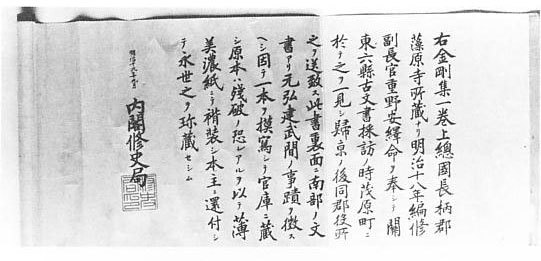 右金剛集一巻上總國長柄郡
藻原寺所藏ナリ明治十八年編修
副長官重野安繹命ヲ奉シテ關
東六縣古文書採訪ノ時茂原町ニ
於テ之ヲ一見シ歸京ノ後同郡役所
之ヲ送致ス此書裏面ニ南部ノ文
書アリ元弘建武間ノ事蹟ヲ徴ス
ヘシ因テ一本ヲ摸寫シテ官庫ニ藏
シ原本ハ殘破ノ恐レアルヲ以テ薄
美濃紙ニテ褙装シ本主ニ還付シ
テ永世之ヲ珍藏セシム
明治十九年
内閣修史局